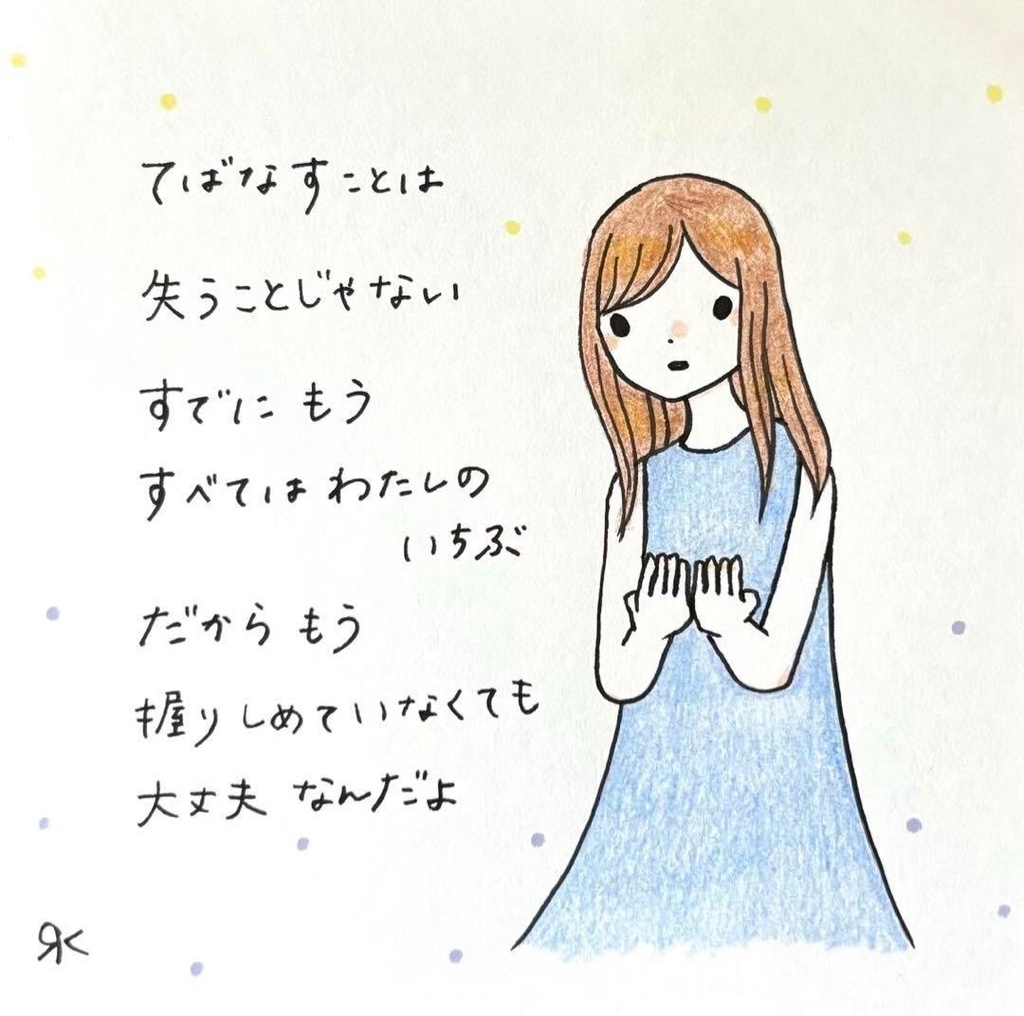 てばなすことは
失うことじゃない
すでに もう
すべては わたしの
いちぶ
だから もう
握りしめていなくても
大丈夫 なんだよ